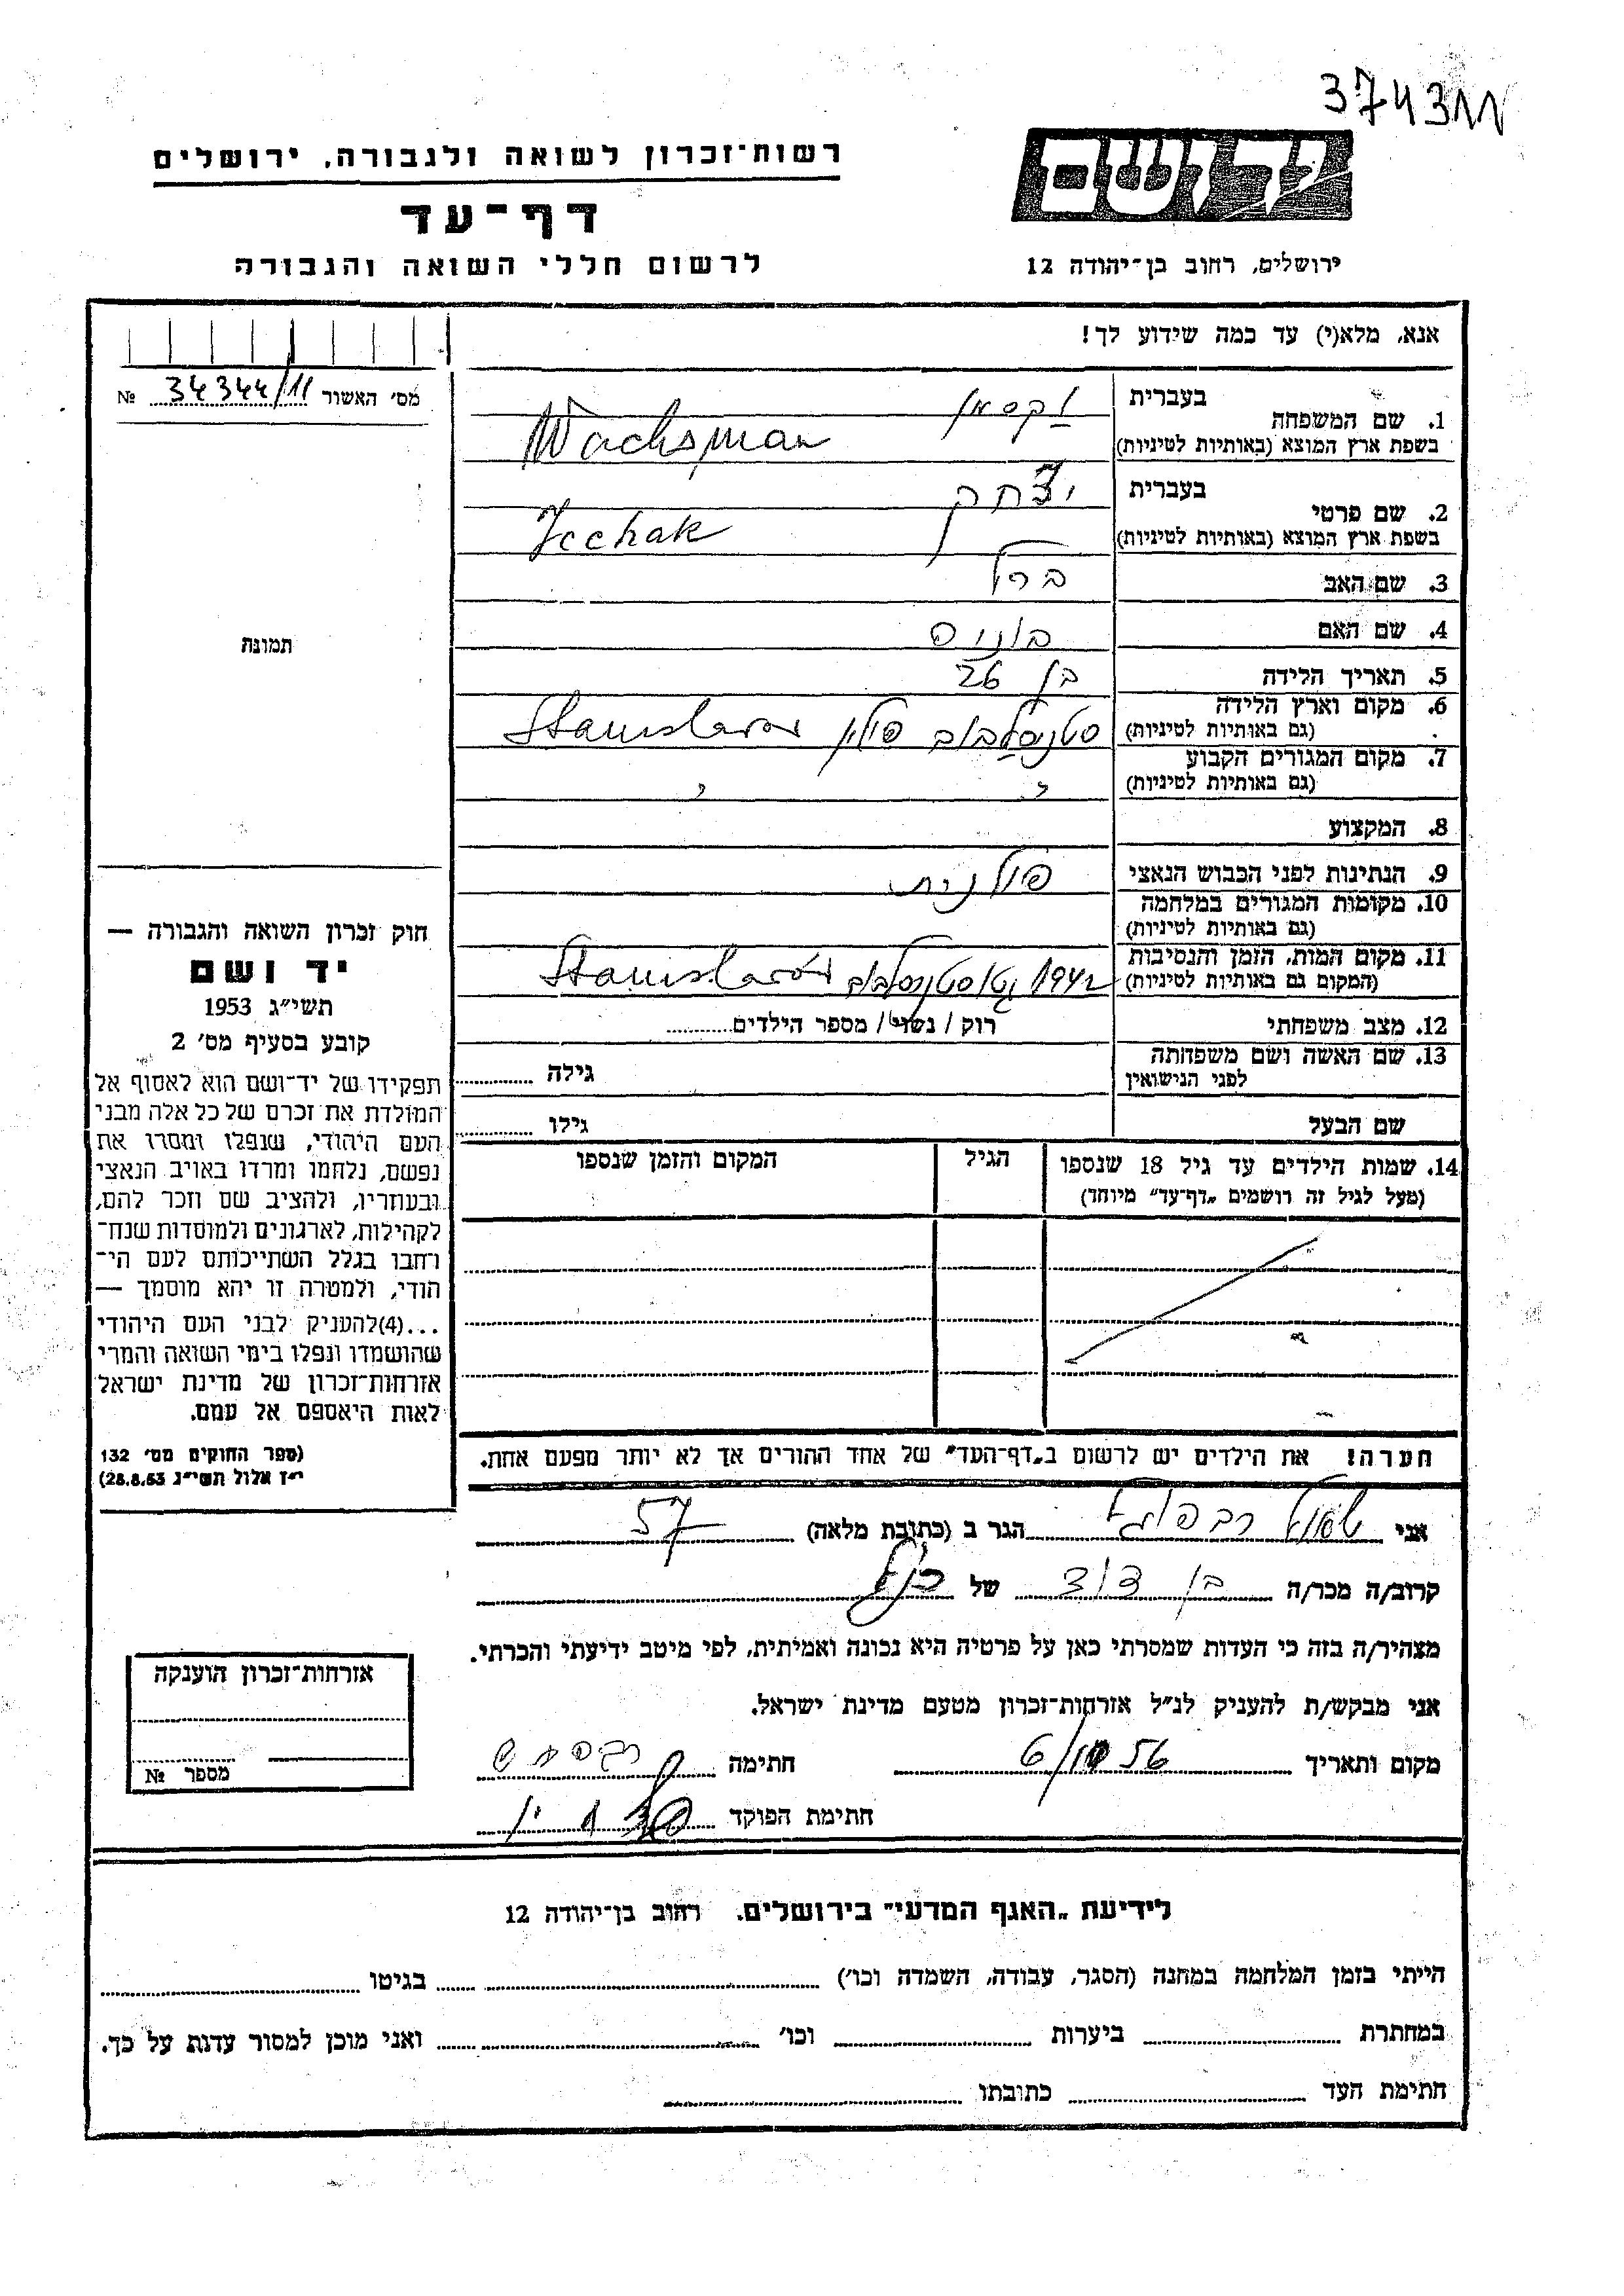 374311
רשות־זכרון לשואה ולגבורה, ירושלים
דף־עד
לרשום חללי השואה והגבורה
ירושלים, רחוב בן־יהודה 12
אנא, מלא(י) עד כמה שידוע לך!
מס' האשור 34344/11 №
תמונה
1. שם המשפחה
בעברית וקסמן
בשפת ארץ המוצא (באותיות לטיניות) Wachsman
2. שם פרטי
בעברית יצחק
בשפת ארץ המוצא (באותיות לטיניות) Icchak
3. שם האב ברל
4. שם האם
5. תאריך הלידה בן 26
6. מקום וארץ הלידה
(גם באותיות לטיניות) סטניסלבוב פולין Stanisławów
7. מקום המגורים הקבוע
(גם באותיות לטיניות) " "
8. המקצוע
9. הנתינות לפני הכבוש הנאצי פולנית
10. מקומות המגורים במלחמה
(גם באותיות לטיניות)
11. מקום המות, הזמן והנסיבות
(המקום גם באותיות לטיניות) 1942 גטו סטניסלבוב Stanisławów
12. מצב משפחתי רוק / נשוי / מספר הילדים
13. שם האשה ושם משפחתה
לפני הנישואין גילה
שם הבעל גילו
14. שמות הילדים עד גיל 18 שנספו הגיל המקום והזמן שנספו
(מעל לגיל זה רושמים „דף־עד" מיוחד)
הערה! את הילדים יש לרשום ב„דף־העד" של אחד ההורים אך לא יותר מפעם אחת.
חוק זכרון השואה והגבורה —
יד ושם
תשי״ג 1953
קובע בסעיף מס' 2
תפקידו של יד־ושם הוא לאסוף אל
המולדת את זכרם של כל אלה מבני
העם היהודי, שנפלו ומסרו את
נפשם, נלחמו ומרדו באויב הנאצי
ובעוזריו, ולהציב שם וזכר להם,
לקהילות, לארגונים ולמוסדות שנח־
רבו בגלל השתייכותם לעם הי־
הודי, ולמטרה זו יהא מוסמך —
...(4) להעניק לבני העם היהודי
שהושמדו ונפלו בימי השואה והמרי
אזרחות־זכרון של מדינת ישראל
לאות היאספם אל עמם.
(ספר החוקים מס' 132
י״ז אלול תשי״ג 28.8.53)
אני הגר ב (כתובת מלאה) 57
קרוב/ה מכר/ה בן דוד של הנ״ל
מצהיר/ה בזה כי העדות שמסרתי כאן על פרטיה היא נכונה ואמיתית, לפי מיטב ידיעתי והכרתי.
אני מבקש/ת להעניק לנ״ל אזרחות־זכרון מטעם מדינת ישראל.
מקום ותאריך חתימה
חתימת הפוקד
אזרחות־זכרון הוענקה
מספר №
לידיעת „האגף המדעי" בירושלים, רחוב בן־יהודה 12
הייתי בזמן המלחמה במחנה (הסגר, עבודה, השמדה וכו') בגיטו
במחתרת ביערות וכו' ואני מוכן למסור עדות על כך.
חתימת העד כתובתו